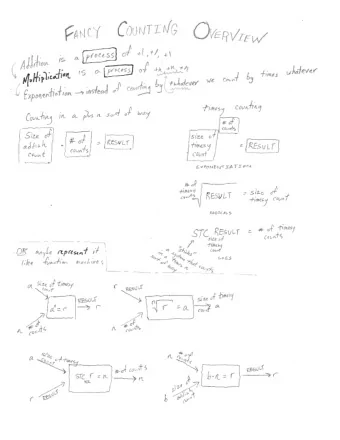 FANCY COUNTING OVERVIEW
Addition is a process of +1, +1, +1
Multiplication is a process of +n, +n, +n
Exponentiation → instead of counting by whatever we count by times whatever
Counting in a plus sort of way
timesy counting
Size of addish count · # of counts = RESULT
size of timesy count # of counts = RESULT
EXPONENTIATION
# of timesy counts √ RESULT = size of timesy count
RADICALS
STC RESULT = # of timesy counts
size of timesy count
LOGS
OR maybe represent it
like function machines:
a size of timesy count
n # of counts
aⁿ = r
RESULT r
r RESULT
n # of counts
ⁿ√r = a
size of timesy count a
a size of timesy count
r RESULT
STC a r = n
# of counts n
n # of counts
b size of addish count
b·n = r
RESULT r